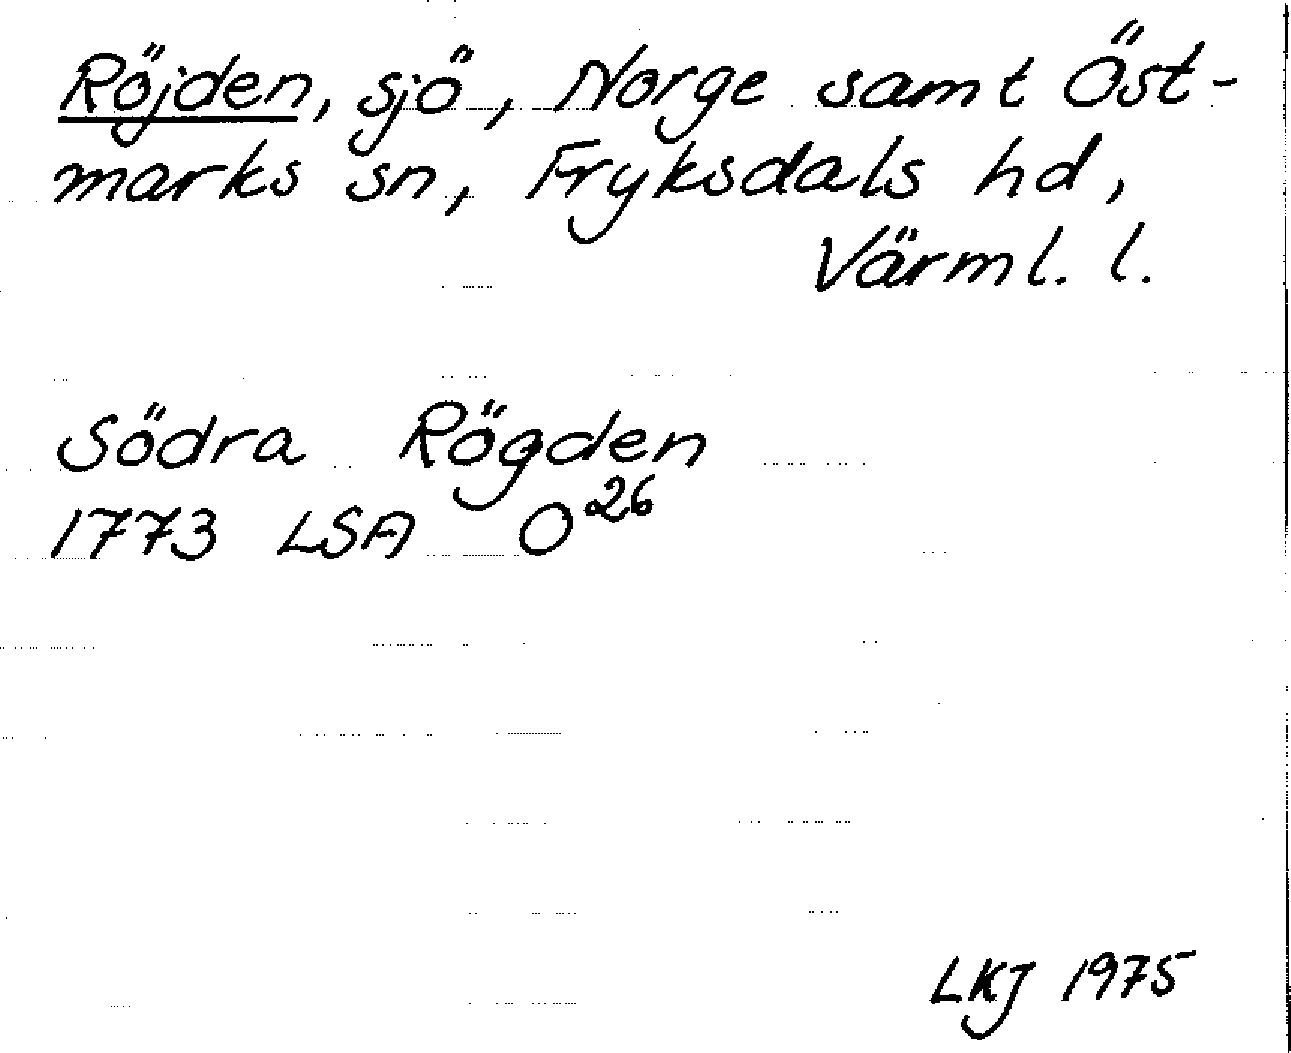 Röjden, sjö, Norge samt Öst-
marks sn, Fryksdals hd,
Värml. l.
Södra Rögden
1773 LSA O26
LKJ 1975